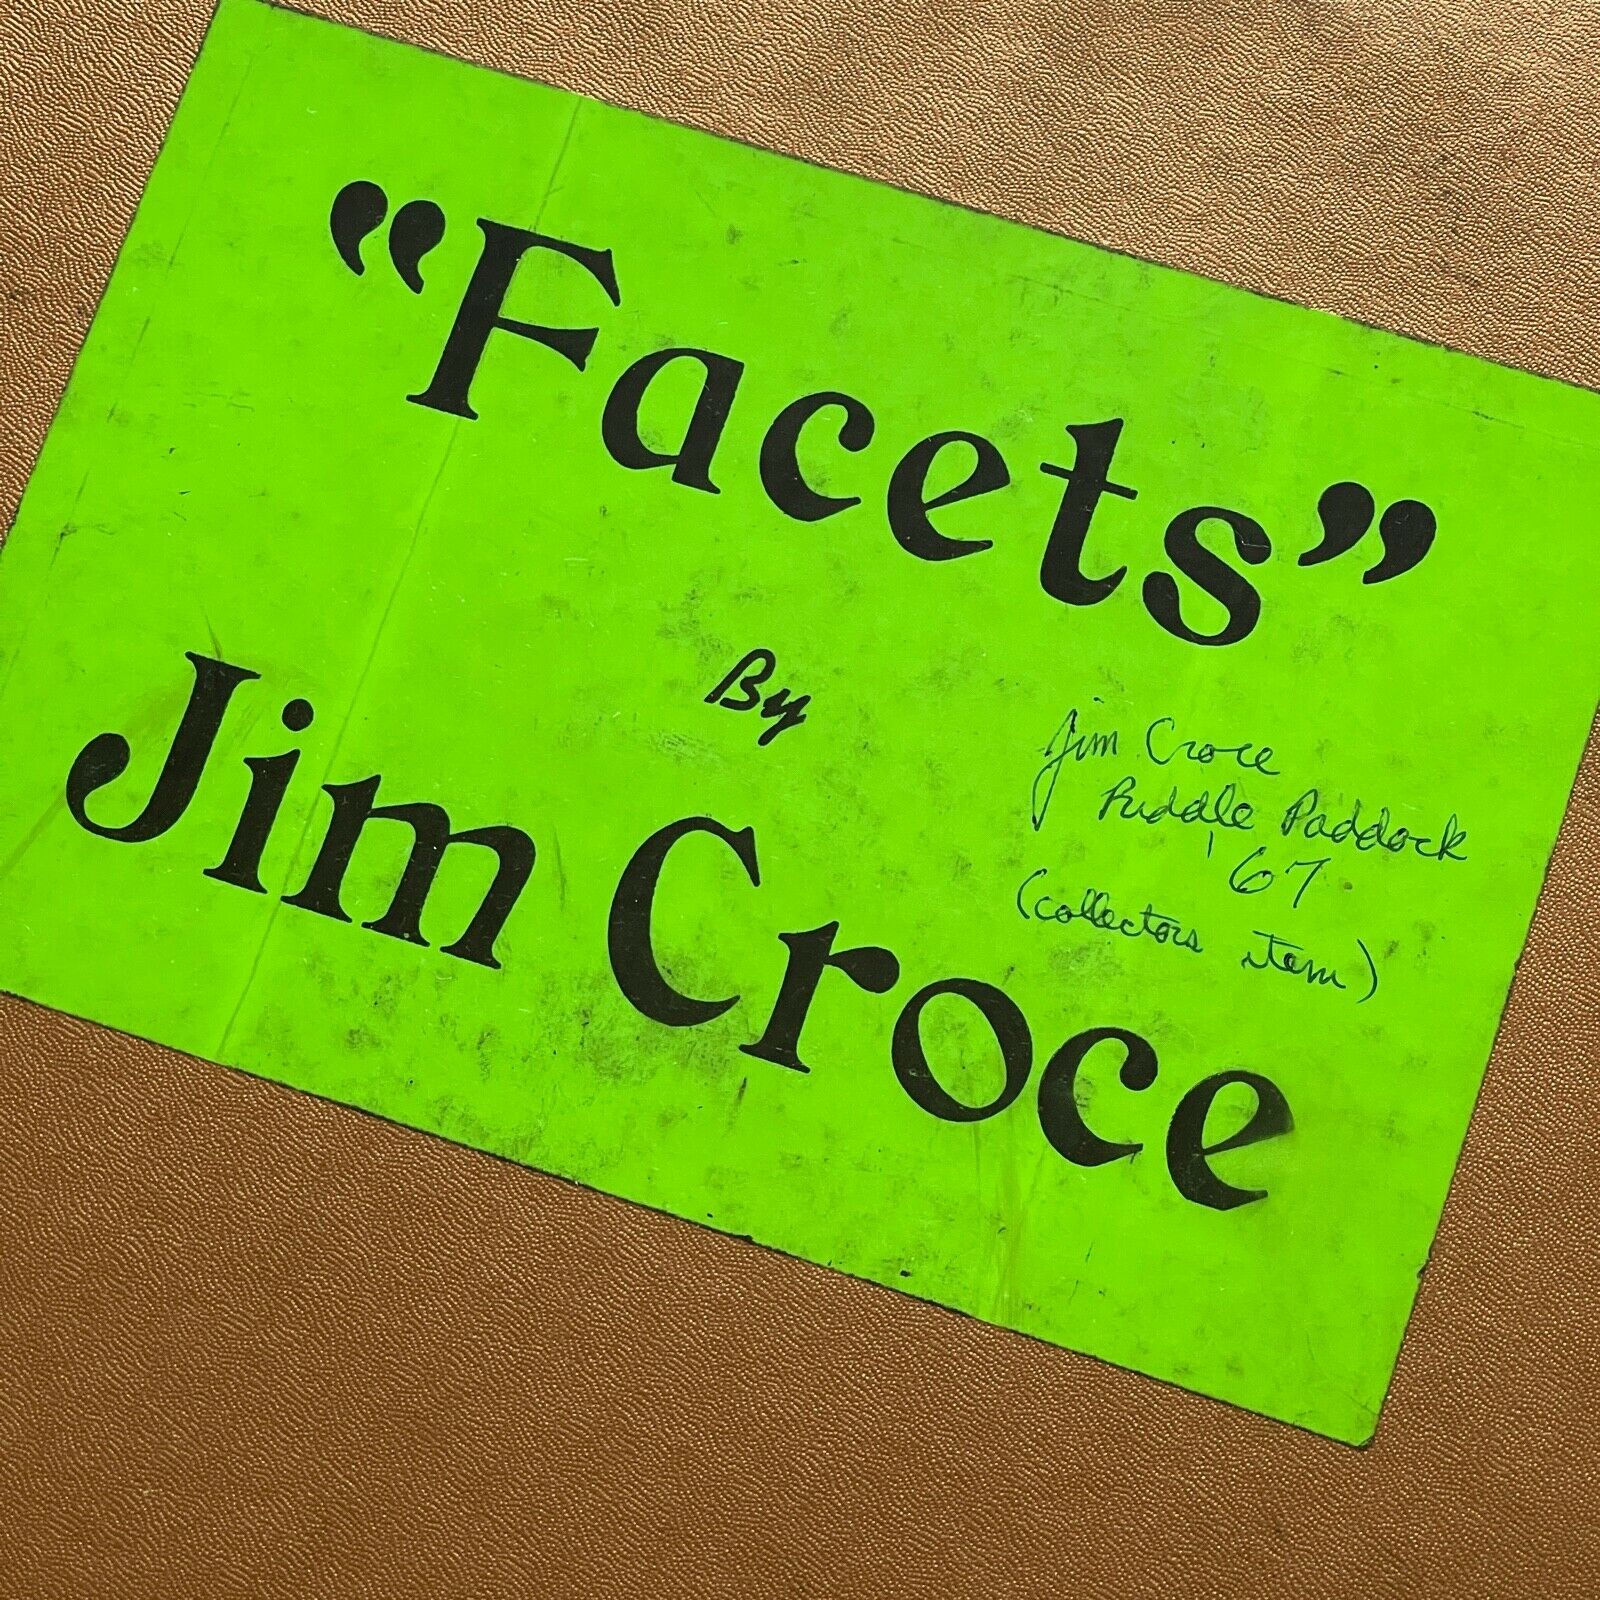 “Facets”
By
Jim Croce
Jim Croce
Puddle Paddock
'67
(collectors item)